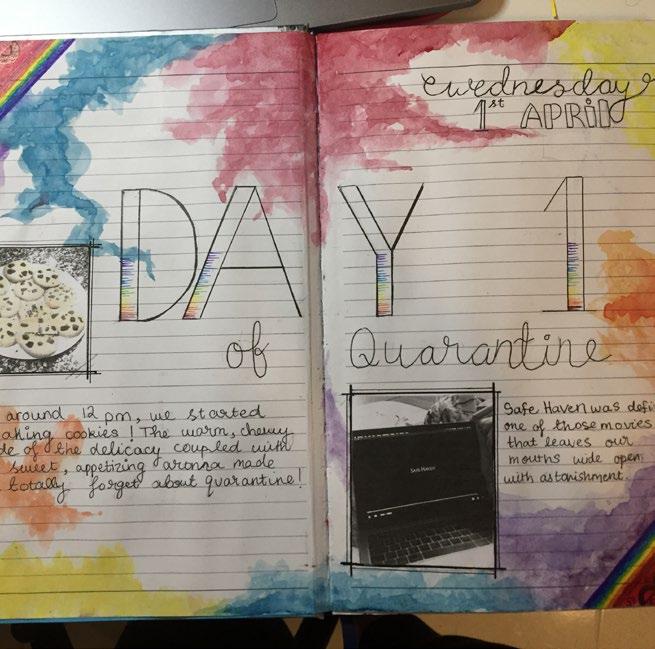 Wednesday
1st APRIL
DAY 1
of Quarantine
around 12 pm, we started
aking cookies! The warm, chewy
de of the delicacy coupled with
sweet, appetizing aroma made
totally forget about quarantine!
SAFE HAVEN
Safe Haven was defi
one of those movies
that leaves our
mouths wide open
with astonishment.